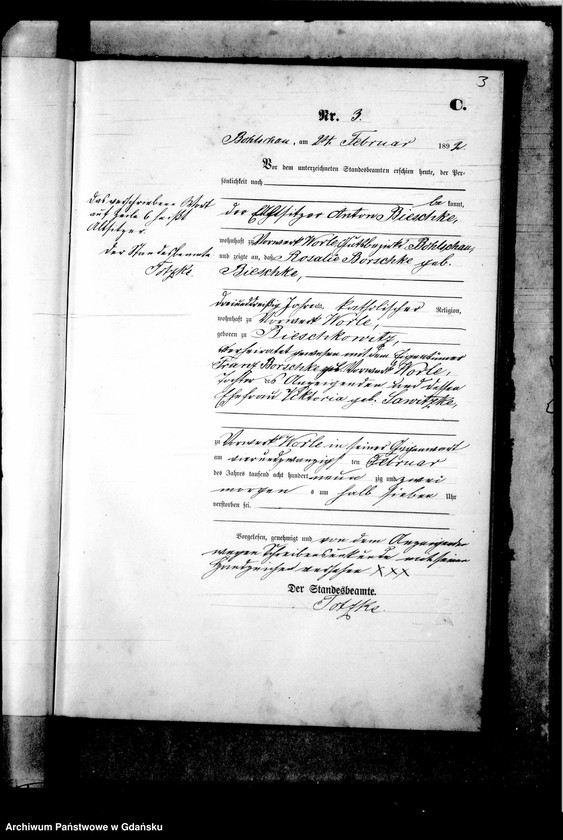 3
C.
Nr. 3.
Bohlschau, am 24. Februar 1892
Vor dem unterzeichneten Standesbeamten erschien heute, der Per-
sönlichkeit nach
be kannt,
Das verschriebene Wort
auf Zeile 6 heißt
Altsitzer.
Der Standesbeamte
Totzke.
der Altsitzer Anton Bieschke,
wohnhaft zu Vorwerk Worle, Gutsbezirk Bohlschau,
und zeigte an, daß Rosalie Borschke geb.
Bieschke,
dreiunddreißig Jahre, katholischer Religion,
wohnhaft zu Vorwerk Worle,
geboren zu Rieschkowitz,
verheiratet gewesen mit dem Eigentümer
Franz Borschke Vorwerk Worle,
Tochter des Anzeigenden und dessen
Ehefrau Viktoria geb. Sawitzke,
zu Vorwerk Worle in seiner Gegenwart
am vierundzwanzigsten Februar
des Jahres tausend acht hundert neun zig und zwei
morgens um halb sieben Uhr
verstorben sei.
Vorgelesen, genehmigt und von dem Anzeigenden
wegen Schreibensunkunde mit seinem
Handzeichen versehen XXX
Der Standesbeamte.
Totzke.
Archiwum Państwowe w Gdańsku